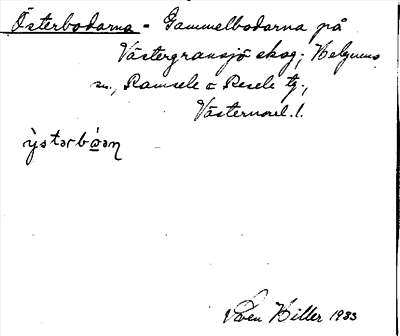 Österbodarna - Gammelbodarna på
Västergransjö skog; Helgums
sn., Ramsele o Resele tg.,
Västernorrl. l.
Sven Hiller 1933